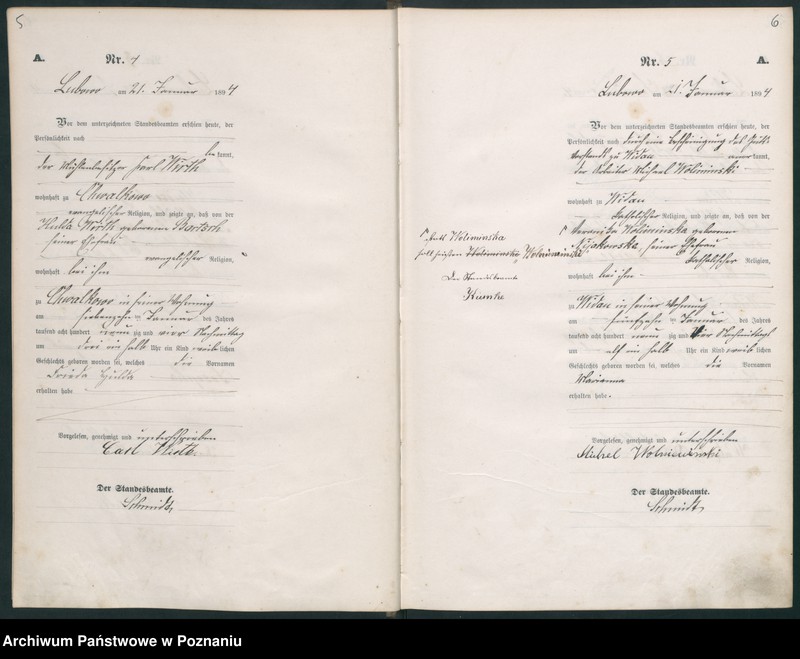 5
A.
Nr. 4
Lubowo am 21. Januar 1894
Vor dem unterzeichneten Standesbeamten erschien heute, der
Persönlichkeit nach
bekannt,
der Mühlenbesitzer Karl Wirth
wohnhaft zu Chwalkowo
evangelischer Religion, und zeigte an, daß von der
Hulda Wirth geborenen Bartsch
seiner Ehefrau
evangelischer Religion,
wohnhaft bei ihm
zu Chwalkowo in seiner Wohnung
am siebenzehn ten Januar des Jahres
tausend acht hundert neun zig und vier Nachmittag
um drei ein halb Uhr ein Kind weib lichen
Geschlechts geboren worden sei, welches die Vornamen
Frieda Hulda
erhalten habe
Vorgelesen, genehmigt und unterschrieben
Carl Wirth
Der Standesbeamte.
Schmidt
6
Nr. 5
A.
Lubowo am 21. Januar 1894
Vor dem unterzeichneten Standesbeamten erschien heute, der
Persönlichkeit nach durch eine Bescheinigung des
Vorstands zu anerkannt,
der Arbeiter Michael Woliminski
wohnhaft zu
katholischer Religion, und zeigte an, daß von der
Veronika Woliminska geborenen
seiner Ehefrau
katholischer Religion
wohnhaft bei ihm
zu in seiner Wohnung
am fünfzehn ten Januar des Jahres
tausend acht hundert neun zig und vier Nachmittags
um elf ein halb Uhr ein Kind weib lichen
Geschlechts geboren worden sei, welches die Vornamen
Marianna
erhalten habe.
Vorgelesen, genehmigt und unterschrieben
Der Standesbeamte.
Schmidt
statt Woliminska
soll heißen
Der Standesbeamte
Archiwum Państwowe w Poznaniu